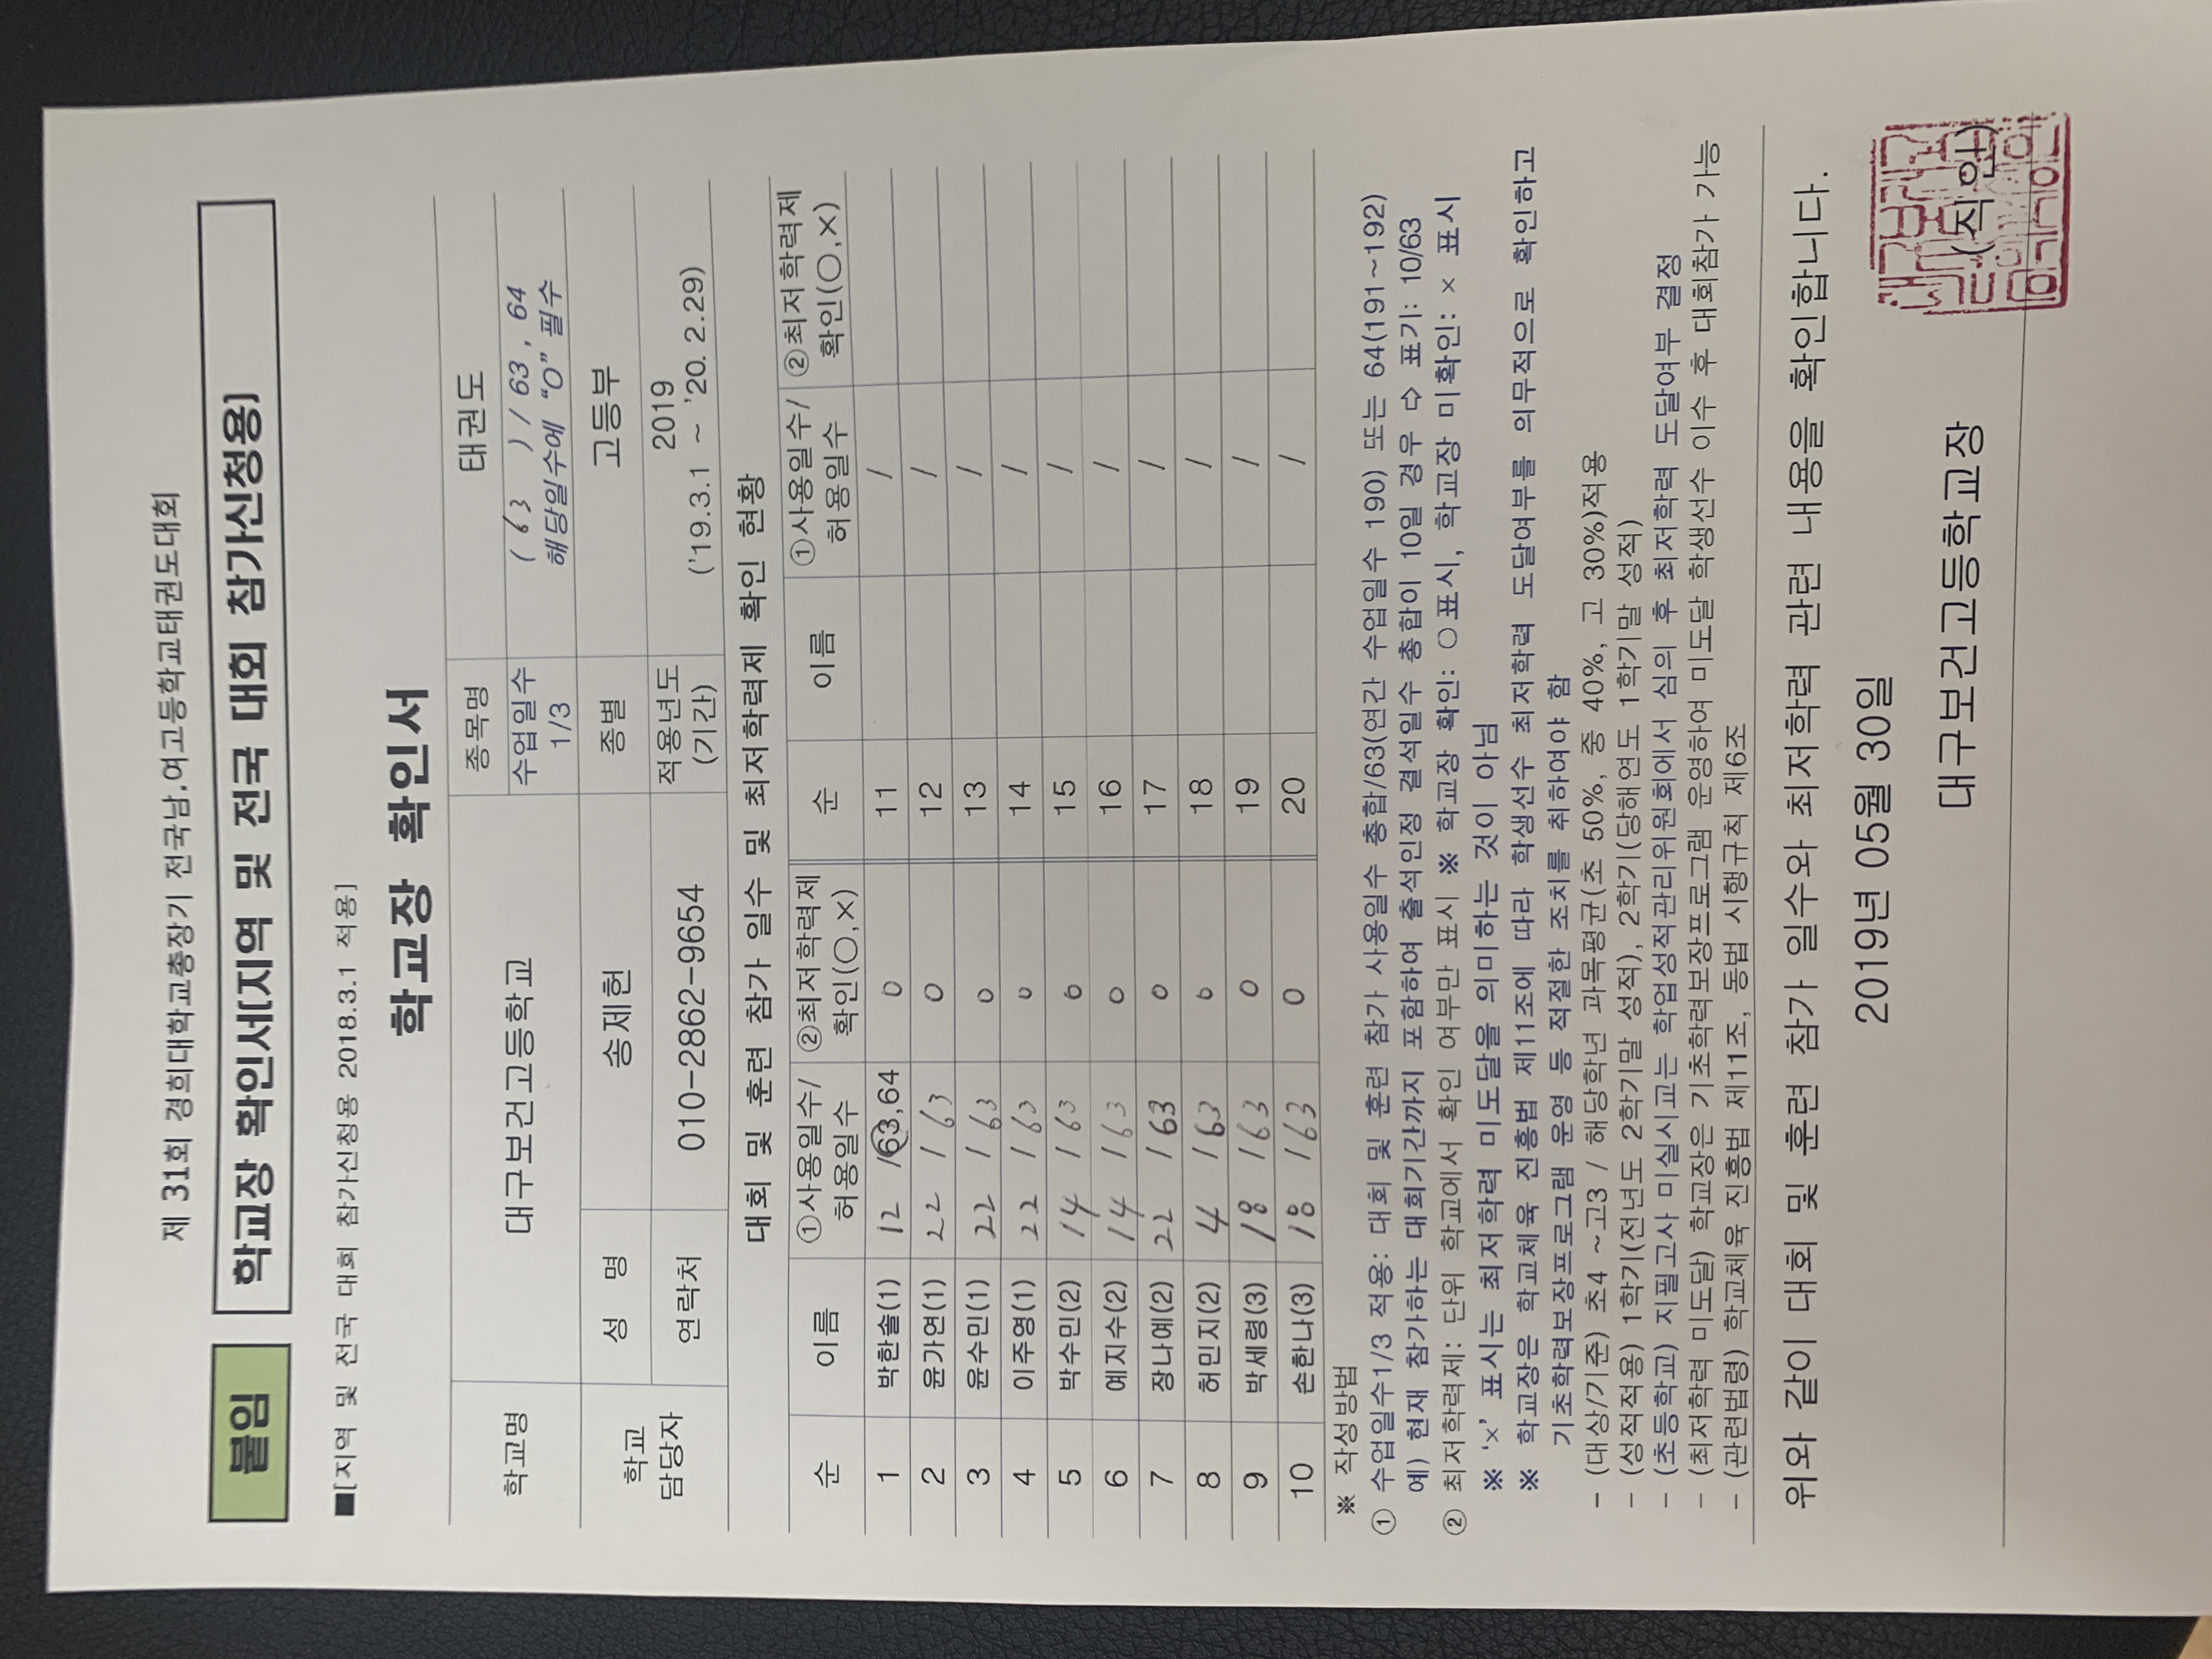 제 31회 경희대학교총장기 전국남.여고등학교태권도대회
붙임 학교장 확인서[지역 및 전국 대회 참가신청용]
■[지역 및 전국 대회 참가신청용 2018.3.1 적용]
학교장 확인서
학교명 대구보건고등학교 종목명 태권도
수업일수 1/3 ( 63 ) / 63, 64 해당일수에 "O" 필수
학교 담당자 성 명 송제헌 종별 고등부
연락처 010-2862-9654 적용년도 (기간) 2019 ('19.3.1 ~ '20.2.29)
대회 및 훈련 참가 일수 및 최저학력제 확인 현황
순 이름 ①사용일수/ 허용일수 ②최저학력제 확인(○,×) 순 이름 ①사용일수/ 허용일수 ②최저학력제 확인(○,×)
1 박한솔(1) 12 /63,64 0 11 /
2 윤가연(1) 22 / 63 0 12 /
3 윤수민(1) 22 / 63 0 13 /
4 이주영(1) 22 / 63 0 14 /
5 박수민(2) 14 / 63 0 15 /
6 예지수(2) 14 / 63 0 16 /
7 장나예(2) 22 / 63 0 17 /
8 허민지(2) 4 / 63 0 18 /
9 박세령(3) 18 / 63 0 19 /
10 손한나(3) 18 / 63 0 20 /
※ 작성방법
① 수업일수1/3 적용: 대회 및 훈련 참가 사용일수 총합/63(연간 수업일수 190) 또는 64(191~192)
예) 현재 참가하는 대회기간까지 포함하여 출석인정 결석일수 총합이 10일 경우 ⇨ 표기: 10/63
② 최저학력제: 단위 학교에서 확인 여부만 표시 ※ 학교장 확인: ○표시, 학교장 미확인: × 표시
※ '×' 표시는 최저학력 미도달을 의미하는 것이 아님
※ 학교장은 학교체육 진흥법 제11조에 따라 학생선수 최저학력 도달여부를 의무적으로 확인하고
기초학력보장프로그램 운영 등 적절한 조치를 취하여야 함
- (대상/기준) 초4 ~고3 / 해당학년 과목평균(초 50%, 중 40%, 고 30%)적용
- (성적적용) 1학기(전년도 2학기말 성적), 2학기(당해연도 1학기말 성적)
- (초등학교) 지필고사 미실시교는 학업성적관리위원회에서 심의 후 최저학력 도달여부 결정
- (최저학력 미도달) 학교장은 기초학력보장프로그램 운영하여 미도달 학생선수 이수 후 대회참가 가능
- (관련법령) 학교체육 진흥법 제11조, 동법 시행규칙 제6조
위와 같이 대회 및 훈련 참가 일수와 최저학력 관련 내용을 확인합니다.
2019년 05월 30일
대구보건고등학교장 (직인)